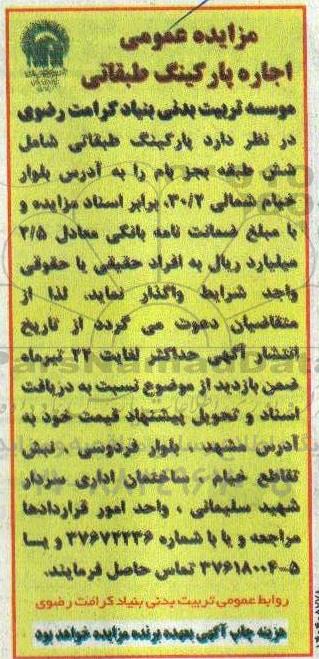 مزایده عمومی
اجاره پارکینگ طبقاتی
موسسه تربیت بدنی بنیاد کرامت رضوی
در نظر دارد پارکینگ طبقاتی شامل
شش طبقه بجز بام را به آدرس بلوار
خیام شمالی ۳۰/۲، برابر اسناد مزایده و
با مبلغ ضمانت نامه بانکی معادل ۲/۵
میلیارد ریال به افراد حقیقی یا حقوقی
واجد شرایط واگذار نماید. لذا از
متقاضیان دعوت می گردد از تاریخ
انتشار آگهی حداکثر لغایت ۲۲ تیرماه
ضمن بازدید از موضوع نسبت به دریافت
اسناد و تحویل پیشنهاد قیمت خود به
آدرس مشهد ، بلوار فردوسی ، نبش
تقاطع خیام ، ساختمان اداری سردار
شهید سلیمانی ، واحد امور قراردادها
مراجعه و یا با شماره ۳۷۶۷۲۲۳۶ و یا
۳۷۶۱۸۰۰۴-۵ تماس حاصل فرمایند.
روابط عمومی تربیت بدنی بنیاد کرامت رضوی
هزینه چاپ آگهی بعهده برنده مزایده خواهد بود
ParsNamadData